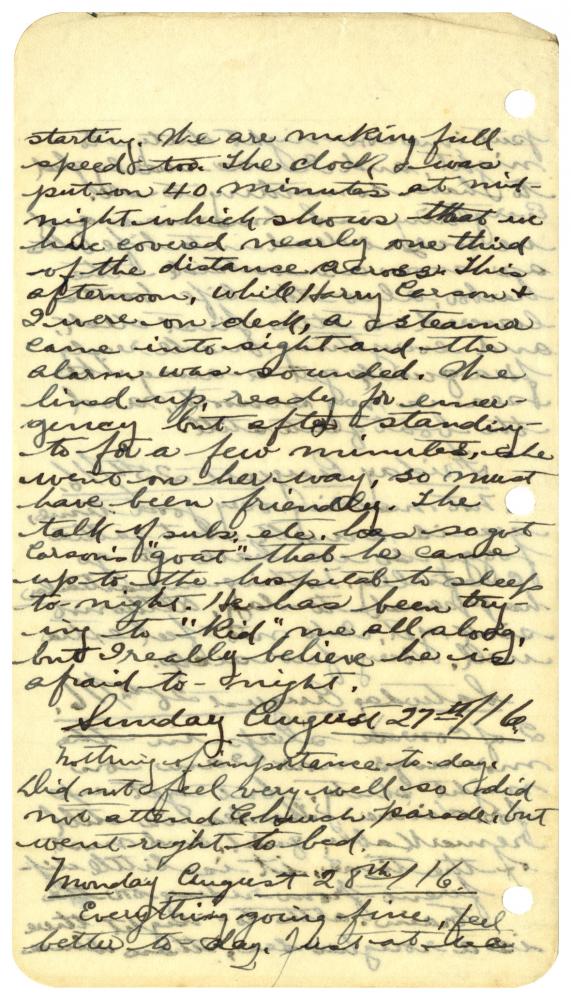 starting. We are making full
speed too. The clock was
put on 40 minutes at mid-
night which shows that we
have covered nearly one third
of the distance across. This
afternoon, while Harry Carson &
I were on deck, a steamer
came into sight and the
alarm was sounded. We
lined up ready for emer-
gency but after standing
to for a few minutes, she
went on her way, so must
have been friendly. The
talk of subs, etc. has so got
Carson's "goat" that he came
up to the hospital to sleep
to-night. He has been try-
ing to "kid" me all along,
but I really believe he is
afraid to-night.
Sunday August 27th/16.
Nothing of importance to-day.
Did not feel very well so did
not attend Church parade, but
went right to bed.
Monday August 28th/16.
Everything going fine, feel
better to-day. Just at tea